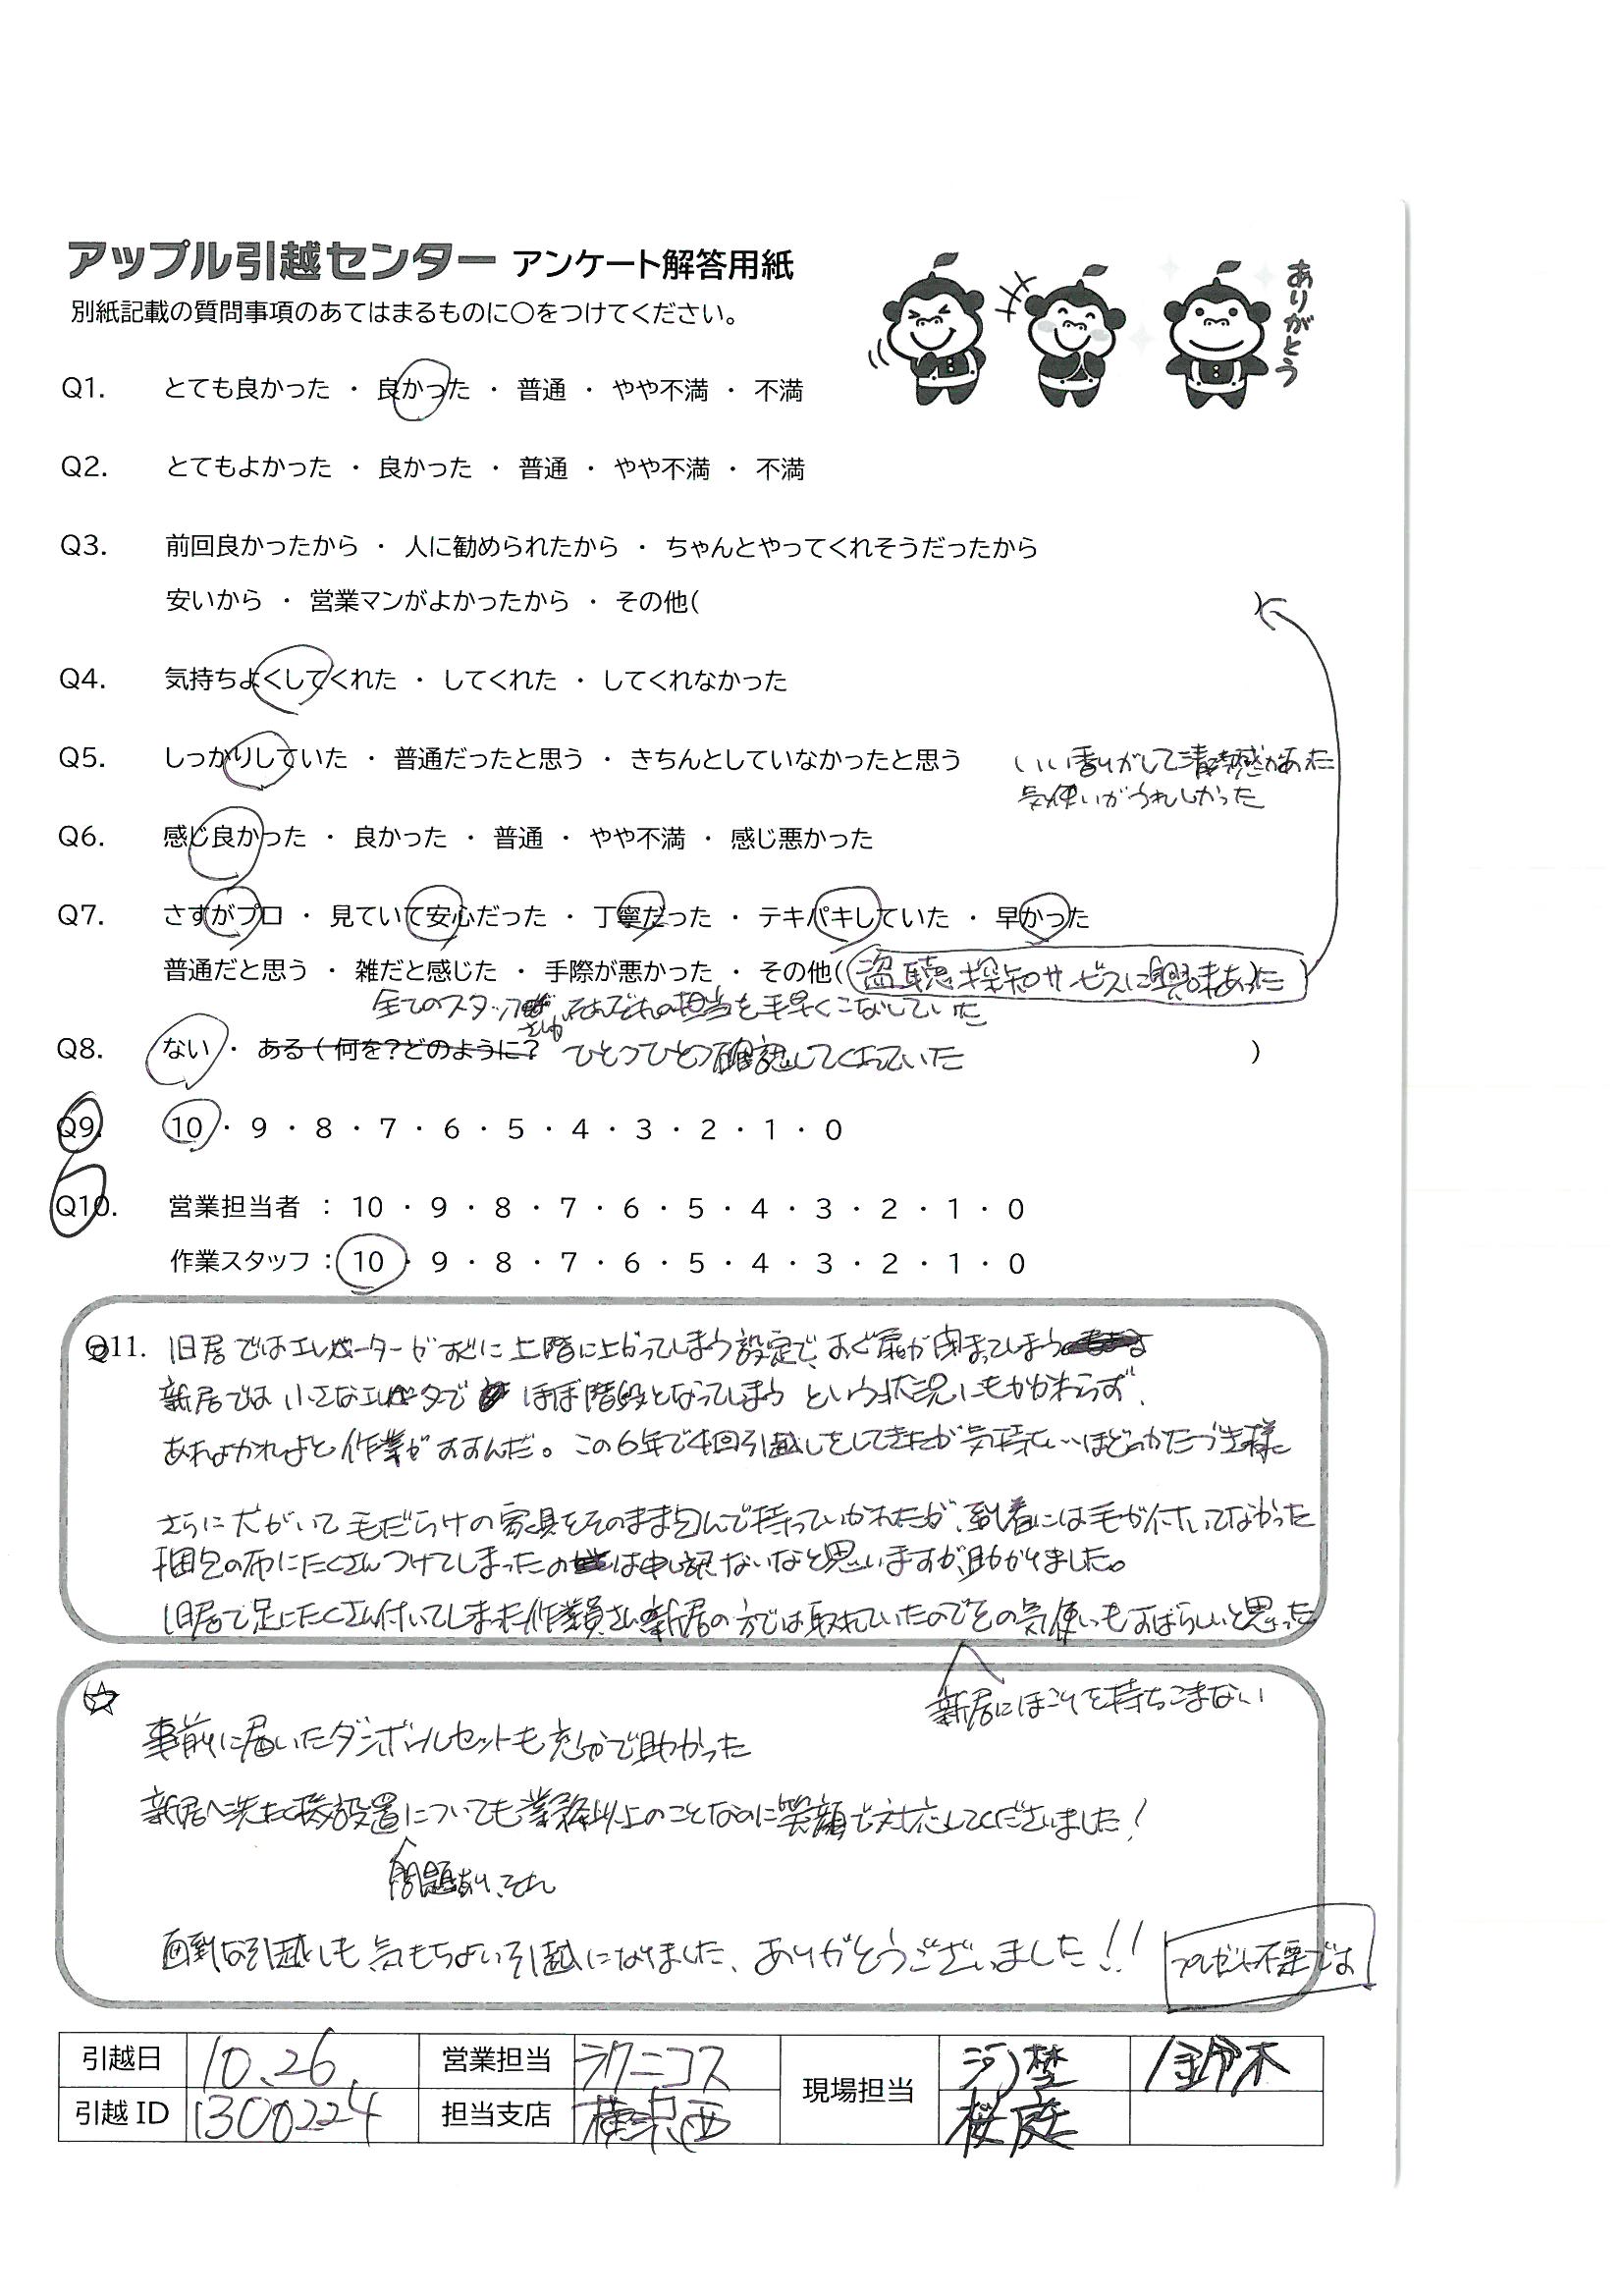 アップル引越センター アンケート解答用紙
別紙記載の質問事項のあてはまるものに○をつけてください。
ありがとう
Q1. とても良かった ・ 良かった ・ 普通 ・ やや不満 ・ 不満
Q2. とてもよかった ・ 良かった ・ 普通 ・ やや不満 ・ 不満
Q3. 前回良かったから ・ 人に勧められたから ・ ちゃんとやってくれそうだったから
安いから ・ 営業マンがよかったから ・ その他( )
Q4. 気持ちよくしてくれた ・ してくれた ・ してくれなかった
Q5. しっかりしていた ・ 普通だったと思う ・ きちんとしていなかったと思う いい香りがして清潔感があった
気使いがうれしかった
Q6. 感じ良かった ・ 良かった ・ 普通 ・ やや不満 ・ 感じ悪かった
Q7. さすがプロ ・ 見ていて安心だった ・ 丁寧だった ・ テキパキしていた ・ 早かった
普通だと思う ・ 雑だと感じた ・ 手際が悪かった ・ その他( 盗聴探知サービスに興味あった )
全てのスタッフさんがそれぞれの担当を手早くこなしていた
Q8. ない ・ ある ( 何を?どのように? ひとつひとつ確認してくださっていた )
Q9. 10 ・ 9 ・ 8 ・ 7 ・ 6 ・ 5 ・ 4 ・ 3 ・ 2 ・ 1 ・ 0
Q10. 営業担当者 : 10 ・ 9 ・ 8 ・ 7 ・ 6 ・ 5 ・ 4 ・ 3 ・ 2 ・ 1 ・ 0
作業スタッフ : 10 ・ 9 ・ 8 ・ 7 ・ 6 ・ 5 ・ 4 ・ 3 ・ 2 ・ 1 ・ 0
Q11. 旧居ではエレベーターがすぐに上階に上がってしまう設定で、すぐ扉が閉まってしまう
新居では小さなエレベータで ほぼ階段となってしまう という状況にもかかわらず、
あれよかれよと作業がすすんだ。この6年で4回引越しをしてきたが気持ちいいほどのかたづき様に
さらに犬がいて毛だらけの家具をそのまま包んで持っていかれたが、到着には毛が付いてなかった
梱包の布にたくさんつけてしまったのは申し訳ないなと思いますが、助かりました。
旧居で足にたくさん付いてしまった作業員さん新居の方では取れていたのでその気使いもすばらしいと思った
新居にほこりを持ちこまない
☆
事前に届いたダンボールセットも充分で助かった
新居へ洗たく機設置についても業務以上のことなのに笑顔で対応してくださいました!
問題あり、それ
面倒な引越しも気もちよい引越になりました、ありがとうございました!! プレゼント不要では
引越日 10.26 営業担当 ラクニコス 現場担当 河埜 鈴木
引越ID 1300224 担当支店 横浜西 桜庭